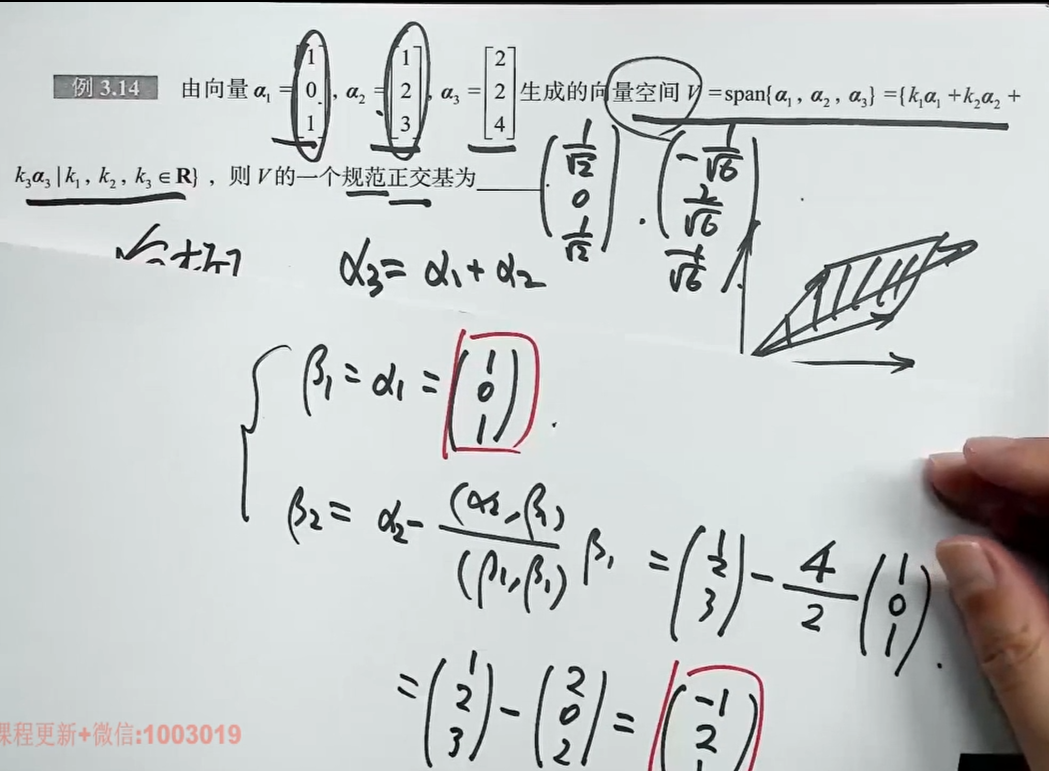 例 3.14 由向量 α₁ = [1 0 1], α₂ = [1 2 3], α₃ = [2 2 4] 生成的向量空间 V =span{α₁, α₂, α₃} ={k₁α₁ +k₂α₂ +
k₃α₃ | k₁, k₂, k₃ ∈ R}, 则 V 的一个规范正交基为______.
(1/√2 0 1/√2) . (-1/√6 2/√6 1/√6)
α₃ = α₁ + α₂
β₁ = α₁ = (1 0 1) .
β₂ = α₂ - (α₂, β₁)/(β₁, β₁) β₁ = (1 2 3) - 4/2 (1 0 1) .
= (1 2 3) - (2 0 2) = (-1 2 1)
课程更新+微信:1003019